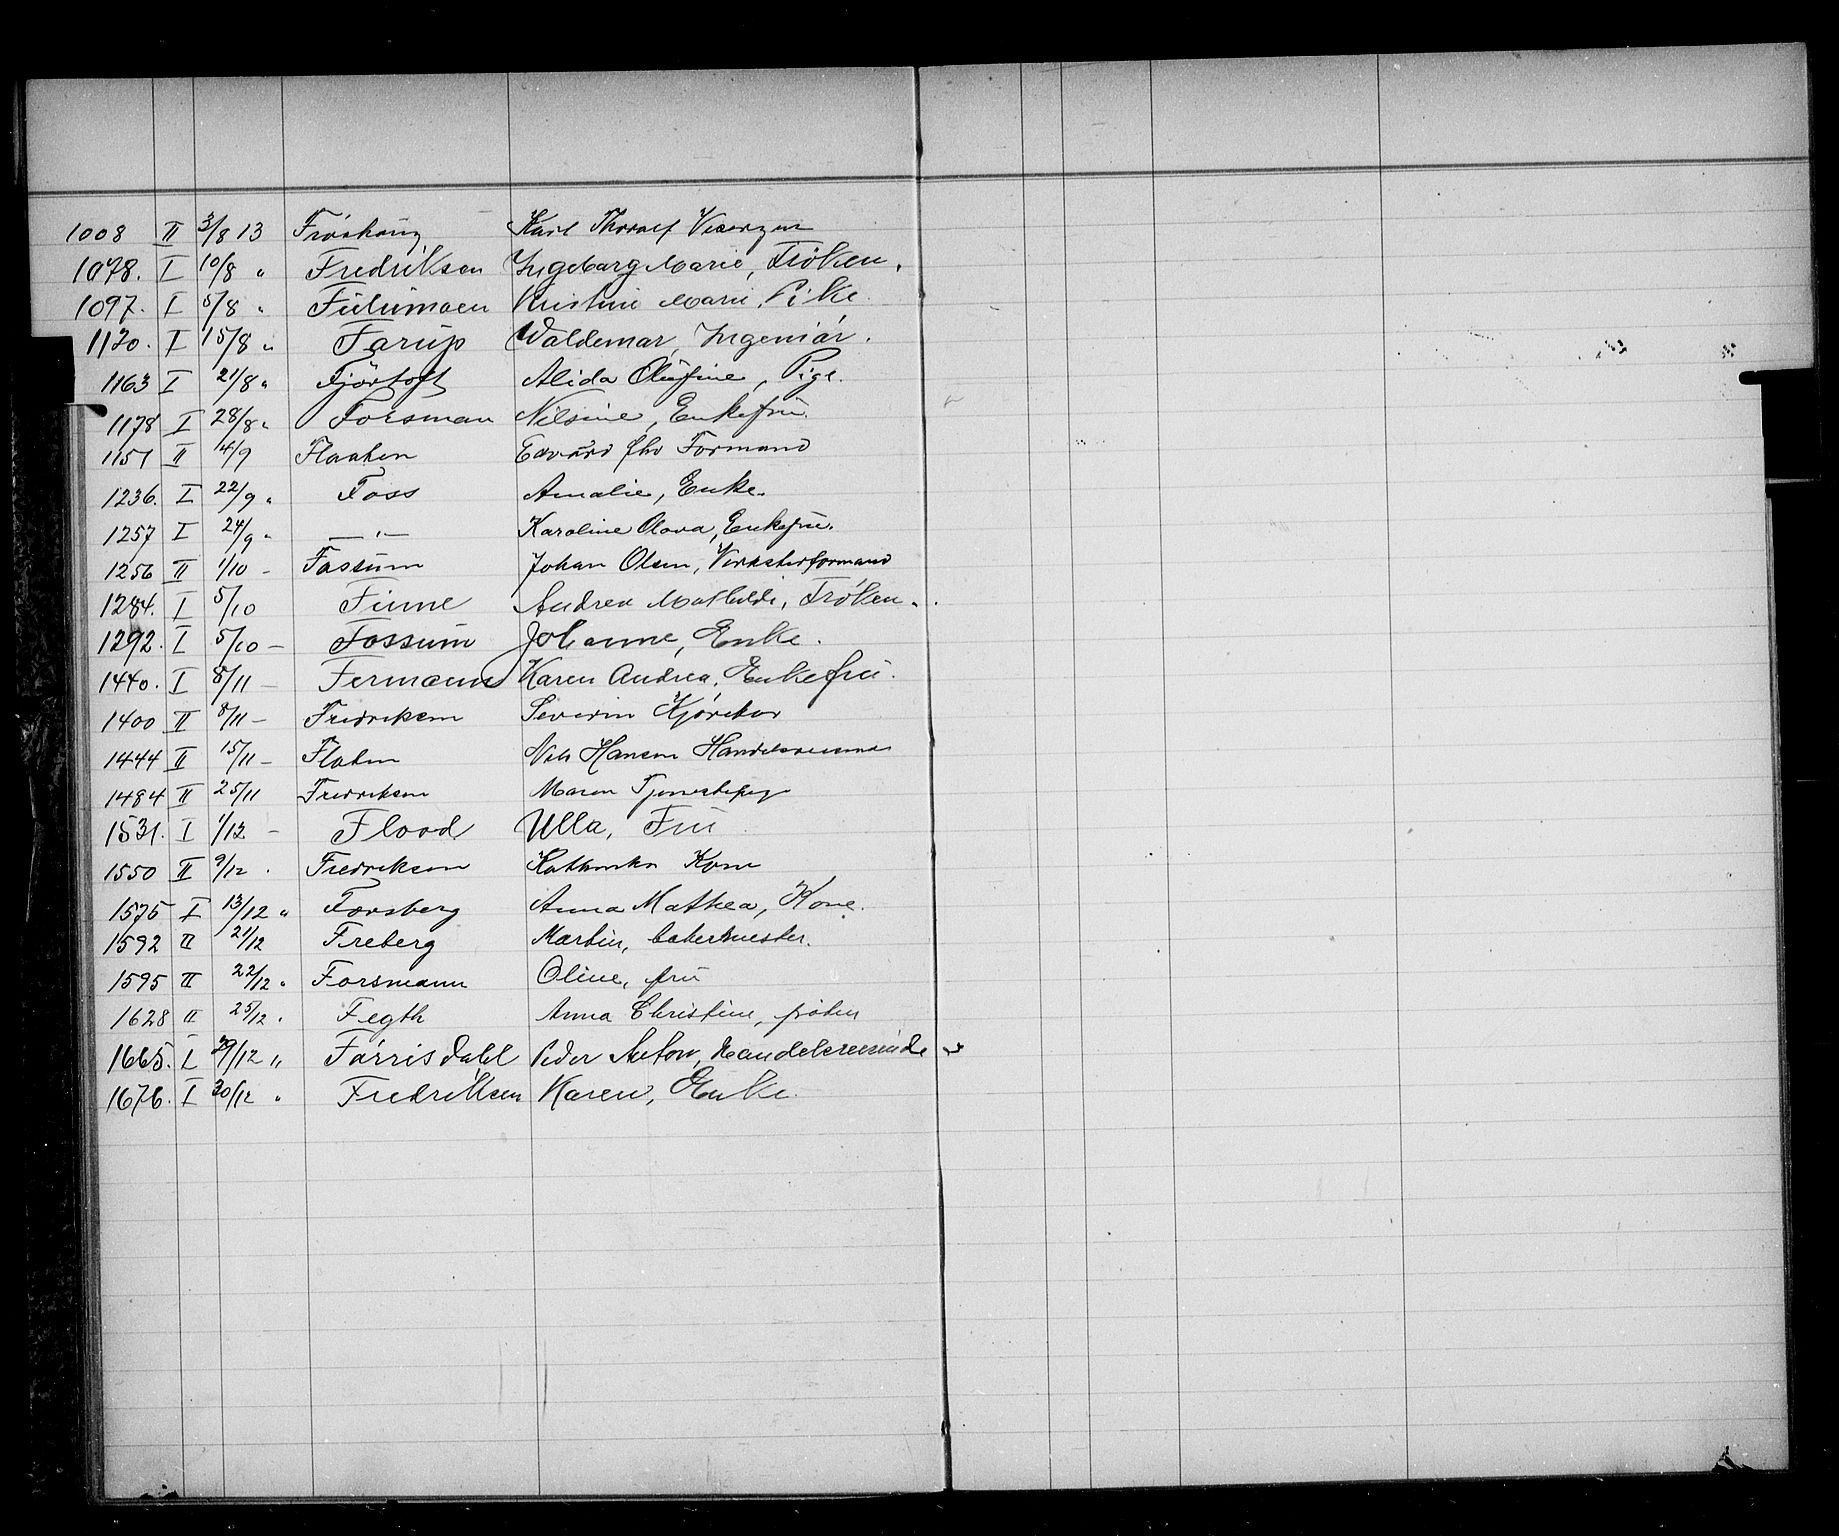 1008 II 3/8 13 Karl Thoralf
1078. I 10/8 " Fredriksen Ingeborg Marie, Frøken.
1097. I 5/8 " Kristine Marie, Pike.
1120. I 15/8 " Farup Waldemar, Ingeniør.
1163 I 21/8 " Fjörtoft Alida Olufine, Pige.
1178 I 28/8 " Forsman Nilsine, Enkefru.
1151 II 4/9 Flaaten Edvard fhv Formand
1236. I 22/9 " Foss Amalie, Enke.
1257 I 24/9 " — " — Karoline Olava, Enkefru.
1256 II 1/10 - Fossum Johan Olsen, Verkstedformand
1284. I 5/10 Finne Andrea Mathilde, Frøken.
1292. I 5/10 — Fossum Johanne, Enke.
1440. I 8/11 — Fermann Karen Andrea, Enkefru.
1400 II 8/11 — Fredriksen Severin Kjørekar
1444 II 15/11 — Flaten Nils Hansen Handelsreisende
1484 II 25/11 Fredriksen Maren
1531. I 1/12 - Flood Ulla, Fru
1550 II 9/12 . Fredriksen Kathinka Kone
1575 I 13/12 " Forsberg Anna Mathea, Kone.
1592 II 21/12 Freberg Martin, bakermester.
1595 II 22/12 " Forsmann Oline, fru
1628 II 25/12 . Fegth Anna Christine, frøken
1665. I 29/12 " Farrisdahl Peder Anton, Handelsreisende
1676. I 30/12 " Fredriksen Karen, Enke.